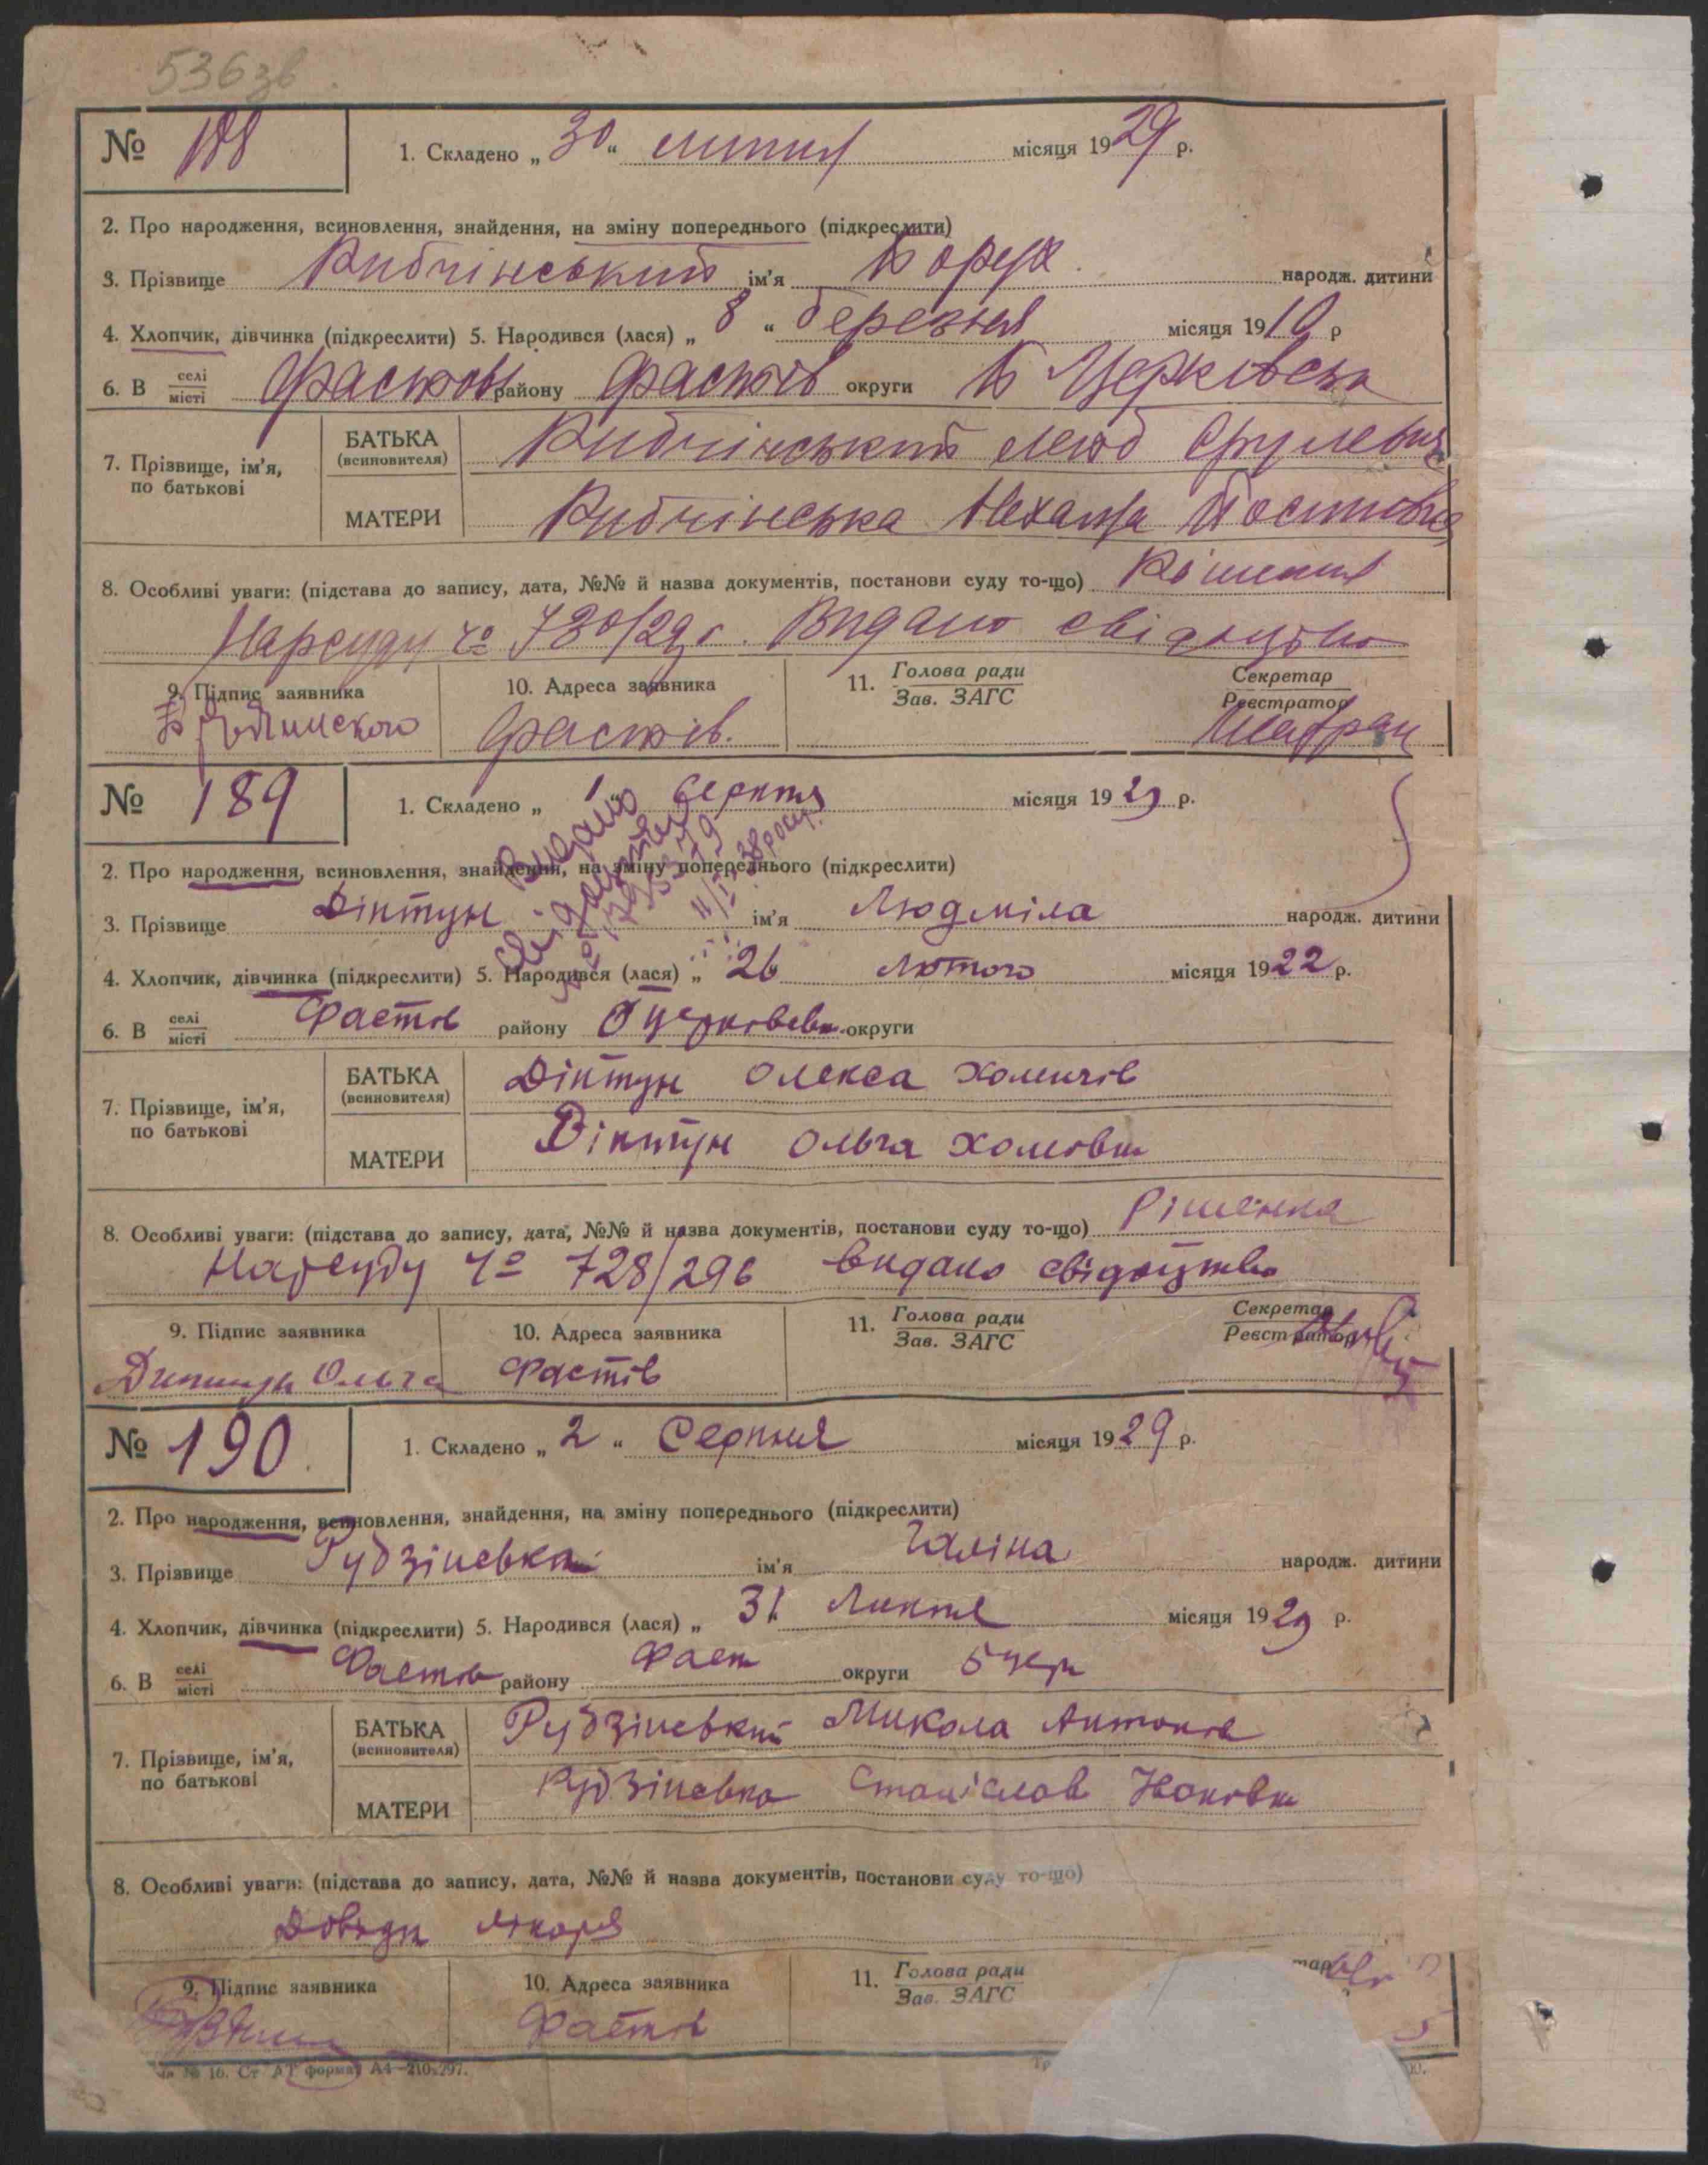 536зв
№ 188
1. Складено „ 30 “ липня місяця 1929 р.
2. Про народження, всиновлення, знайдення, на зміну попереднього (підкреслити)
3. Прізвище Рибчінський ім'я Борух народж. дитини
4. Хлопчик, дівчинка (підкреслити) 5. Народився (лася) „ 8 “ березня місяця 1910 р
6. В селі місті Фастові району Фастів округи Б Церківськ
7. Прізвище, ім'я, по батькові
БАТЬКА (всиновителя) Рибчінський Лейб Срулевич
МАТЕРИ Рибчінська
8. Особливі уваги: (підстава до запису, дата, №№ й назва документів, постанови суду то-що) Рішення
Нарсуду ч° 780/29 р. Видано свідоцтво
9. Підпис заявника
10. Адреса заявника
11. Голова ради Зав. ЗАГС
Секретар Реєстратор
Фастів.
№ 189
1. Складено „ 1 “ Серпня місяця 1929 р.
Видано свідоцтво
2. Про народження, всиновлення, знайдення, на зміну попереднього (підкреслити)
3. Прізвище Діптун ім'я Людміла народж. дитини
4. Хлопчик, дівчинка (підкреслити) 5. Народився (лася) „ 26 Лютого місяця 1922 р.
6. В селі місті Фастів району Бцерківськ округи
7. Прізвище, ім'я, по батькові
БАТЬКА (всиновителя) Діптун Олекса
МАТЕРИ Діптун Ольга Хомовн
8. Особливі уваги: (підстава до запису, дата, №№ й назва документів, постанови суду то-що) Рішення
Нарсуду ч° 728/29б видано свідоцтво
9. Підпис заявника
10. Адреса заявника
11. Голова ради Зав. ЗАГС
Секретар Реєстратор
Диптун Ольга Фастів
№ 190.
1. Складено „ 2 “ Серпня місяця 1929 р.
2. Про народження, всиновлення, знайдення, на зміну попереднього (підкреслити)
3. Прізвище Рудзінська ім'я Галіна народж. дитини
4. Хлопчик, дівчинка (підкреслити) 5. Народився (лася) „ 31 Липня місяця 1929 р.
6. В селі місті Фастів району Фаст округи Бцерк
7. Прізвище, ім'я, по батькові
БАТЬКА (всиновителя) Рудзінський Микола Антонів
МАТЕРИ Рудзінська Станіслав
8. Особливі уваги: (підстава до запису, дата, №№ й назва документів, постанови суду то-що)
Довідки лікаря
9. Підпис заявника
10. Адреса заявника
11. Голова ради Зав. ЗАГС
Фастів
№ 16. Ст АТ формат А4—210×297.